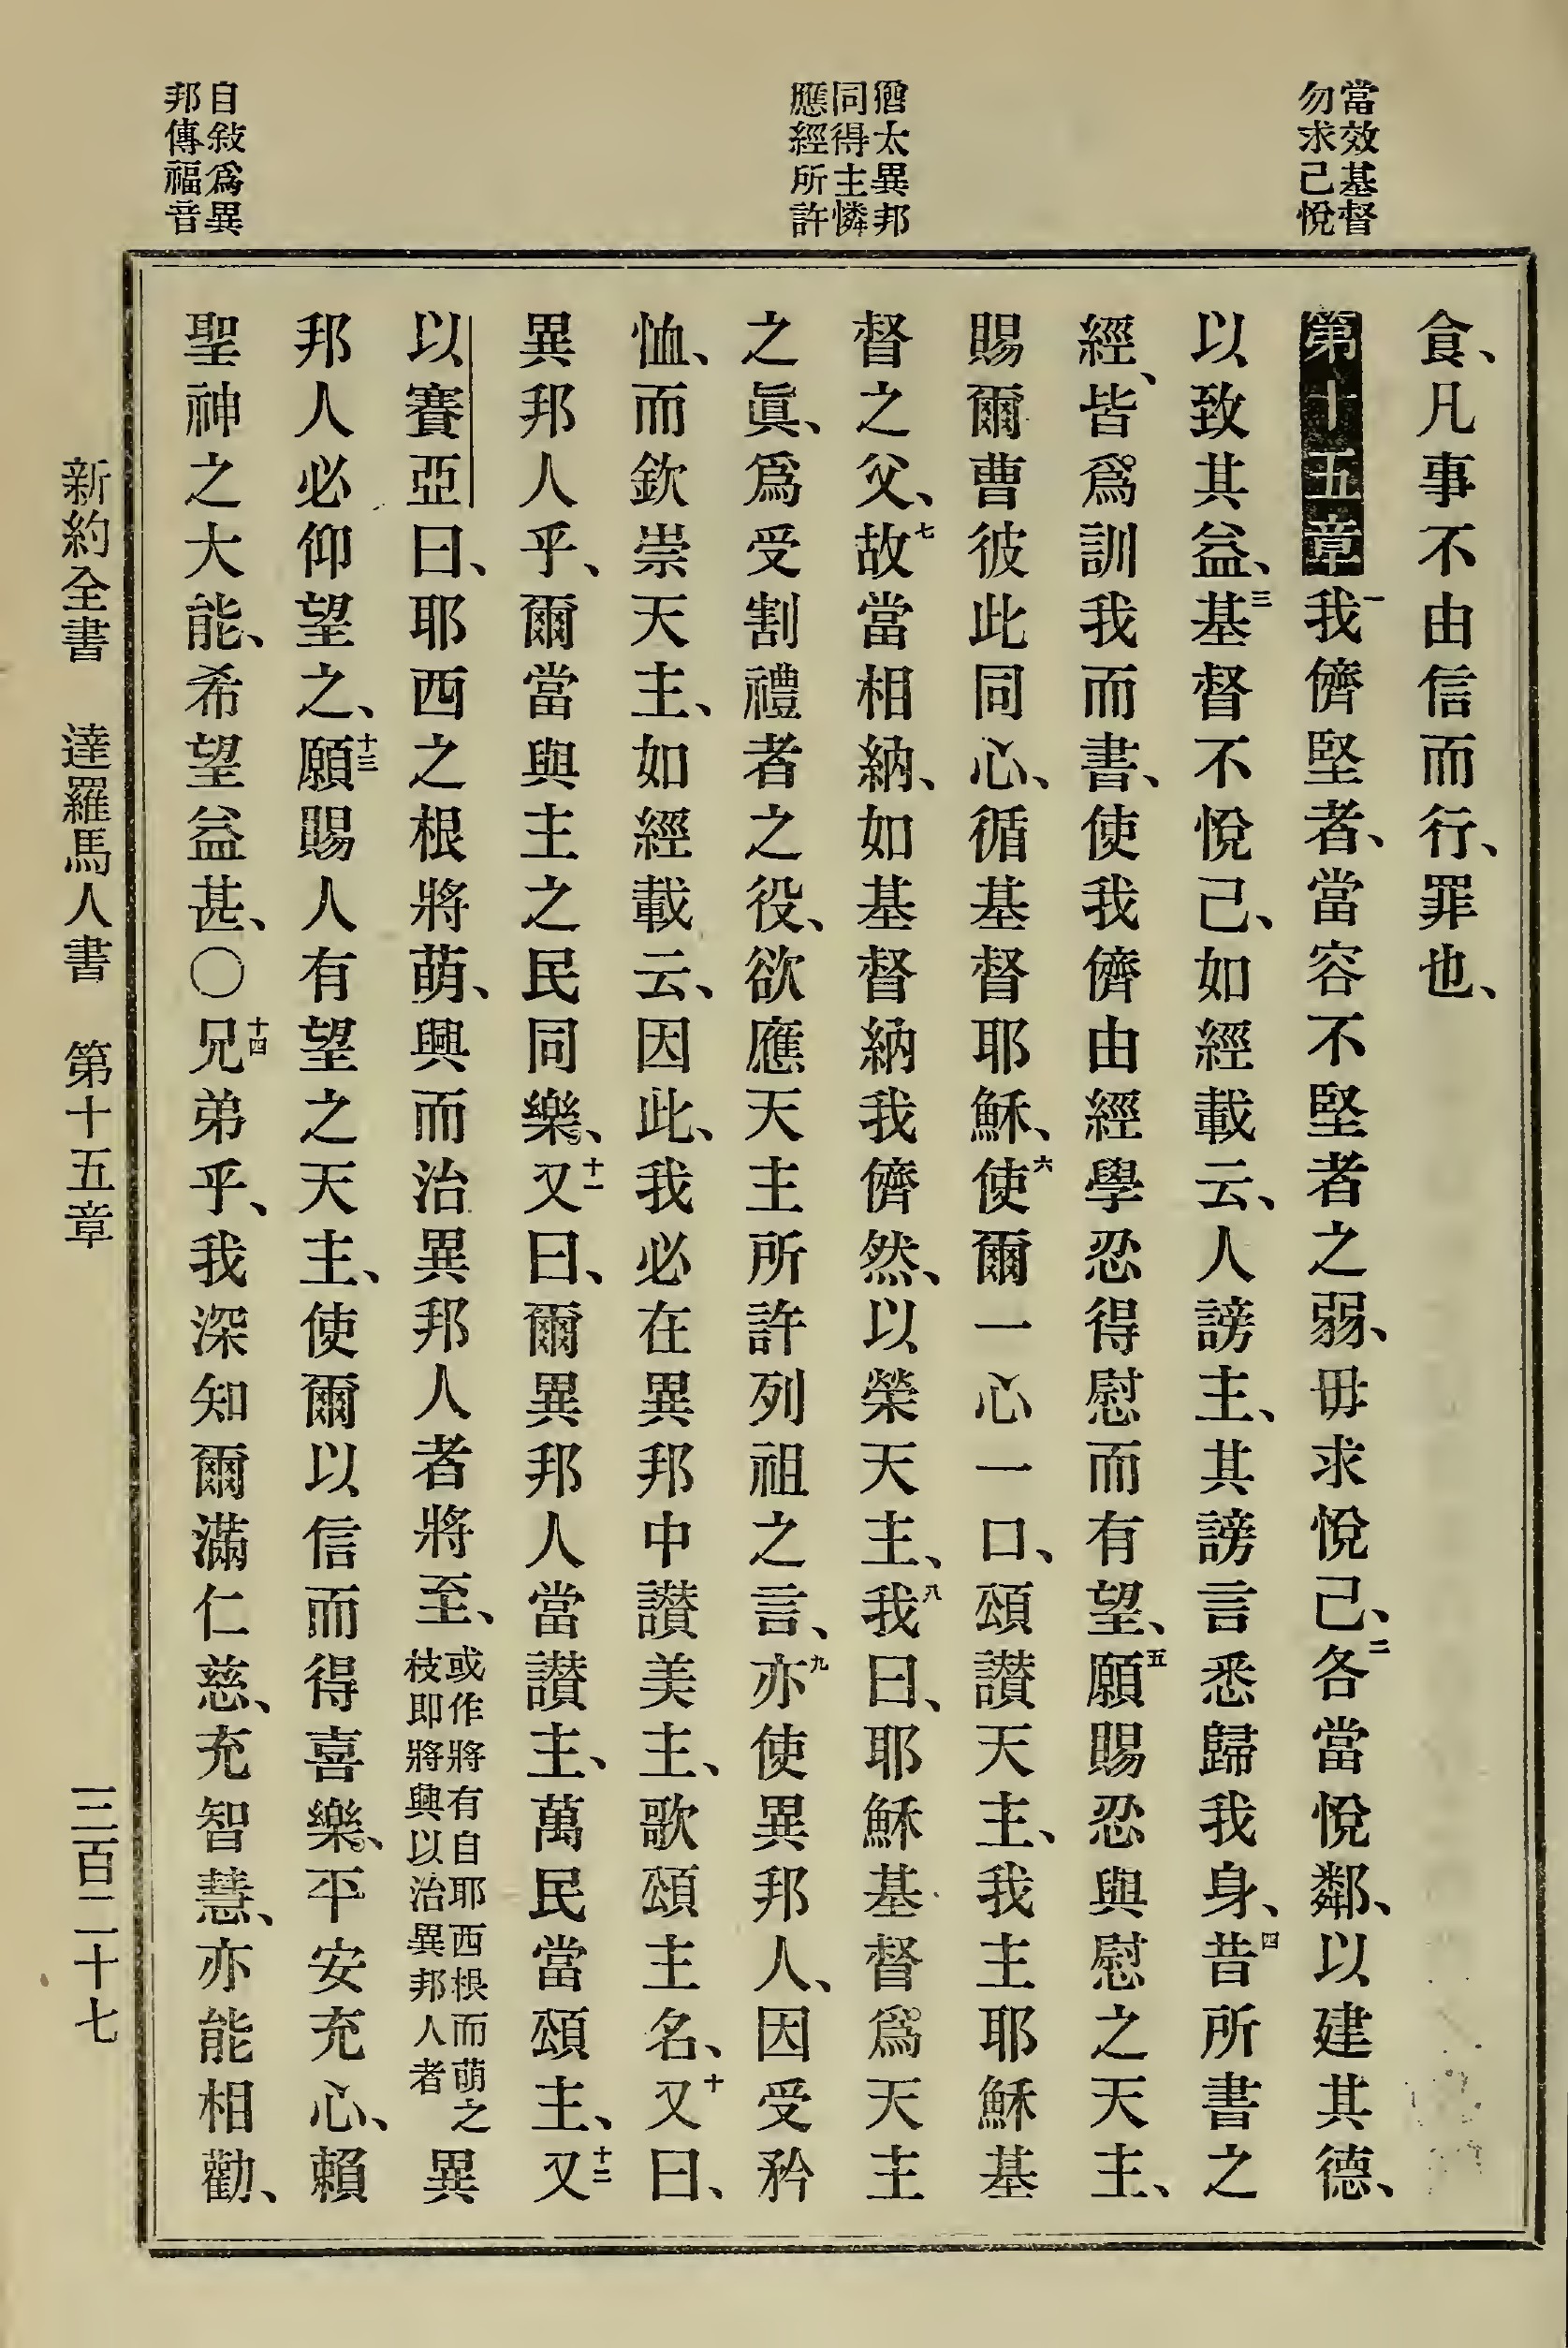 當效基督
勿求己悅
猶太異邦
同得主憐
應經所許
自敍爲異
邦傳福音
食、凡事不由信而行、罪也、
第十五章一我儕堅者、當容不堅者之弱、毋求悅己、二各當悅鄰、以建其德、
以致其益、三基督不悅己、如經載云、人謗主、其謗言悉歸我身、四昔所書之
經、皆爲訓我而書、使我儕由經學忍得慰而有望、五願賜忍與慰之天主、
賜爾曹彼此同心、循基督耶穌、六使爾一心一口、頌讃天主、我主耶穌基
督之父、七故當相納、如基督納我儕然、以榮天主、八我曰、耶穌基督爲天主
之眞、爲受割禮者之役、欲應天主所許列祖之言、九亦使異邦人、因受矜
恤、而欽崇天主、如經載云、因此、我必在異邦中讃美主、歌頌主名、十又曰、
異邦人乎、爾當與主之民同樂、十一又曰、爾異邦人當讃主、萬民當頌主、十二又
以賽亞曰、耶西之根將萌、興而治異邦人者將至、或作將有自耶西根而萌之枝即將興以治異邦人者異
邦人必仰望之、十三願賜人有望之天主、使爾以信而得喜樂、平安充心、賴
聖神之大能、希望益甚、〇十四兄弟乎、我深知爾滿仁慈、充智慧、亦能相勸、
新約全書 達羅馬人書 第十五章 三百二十七